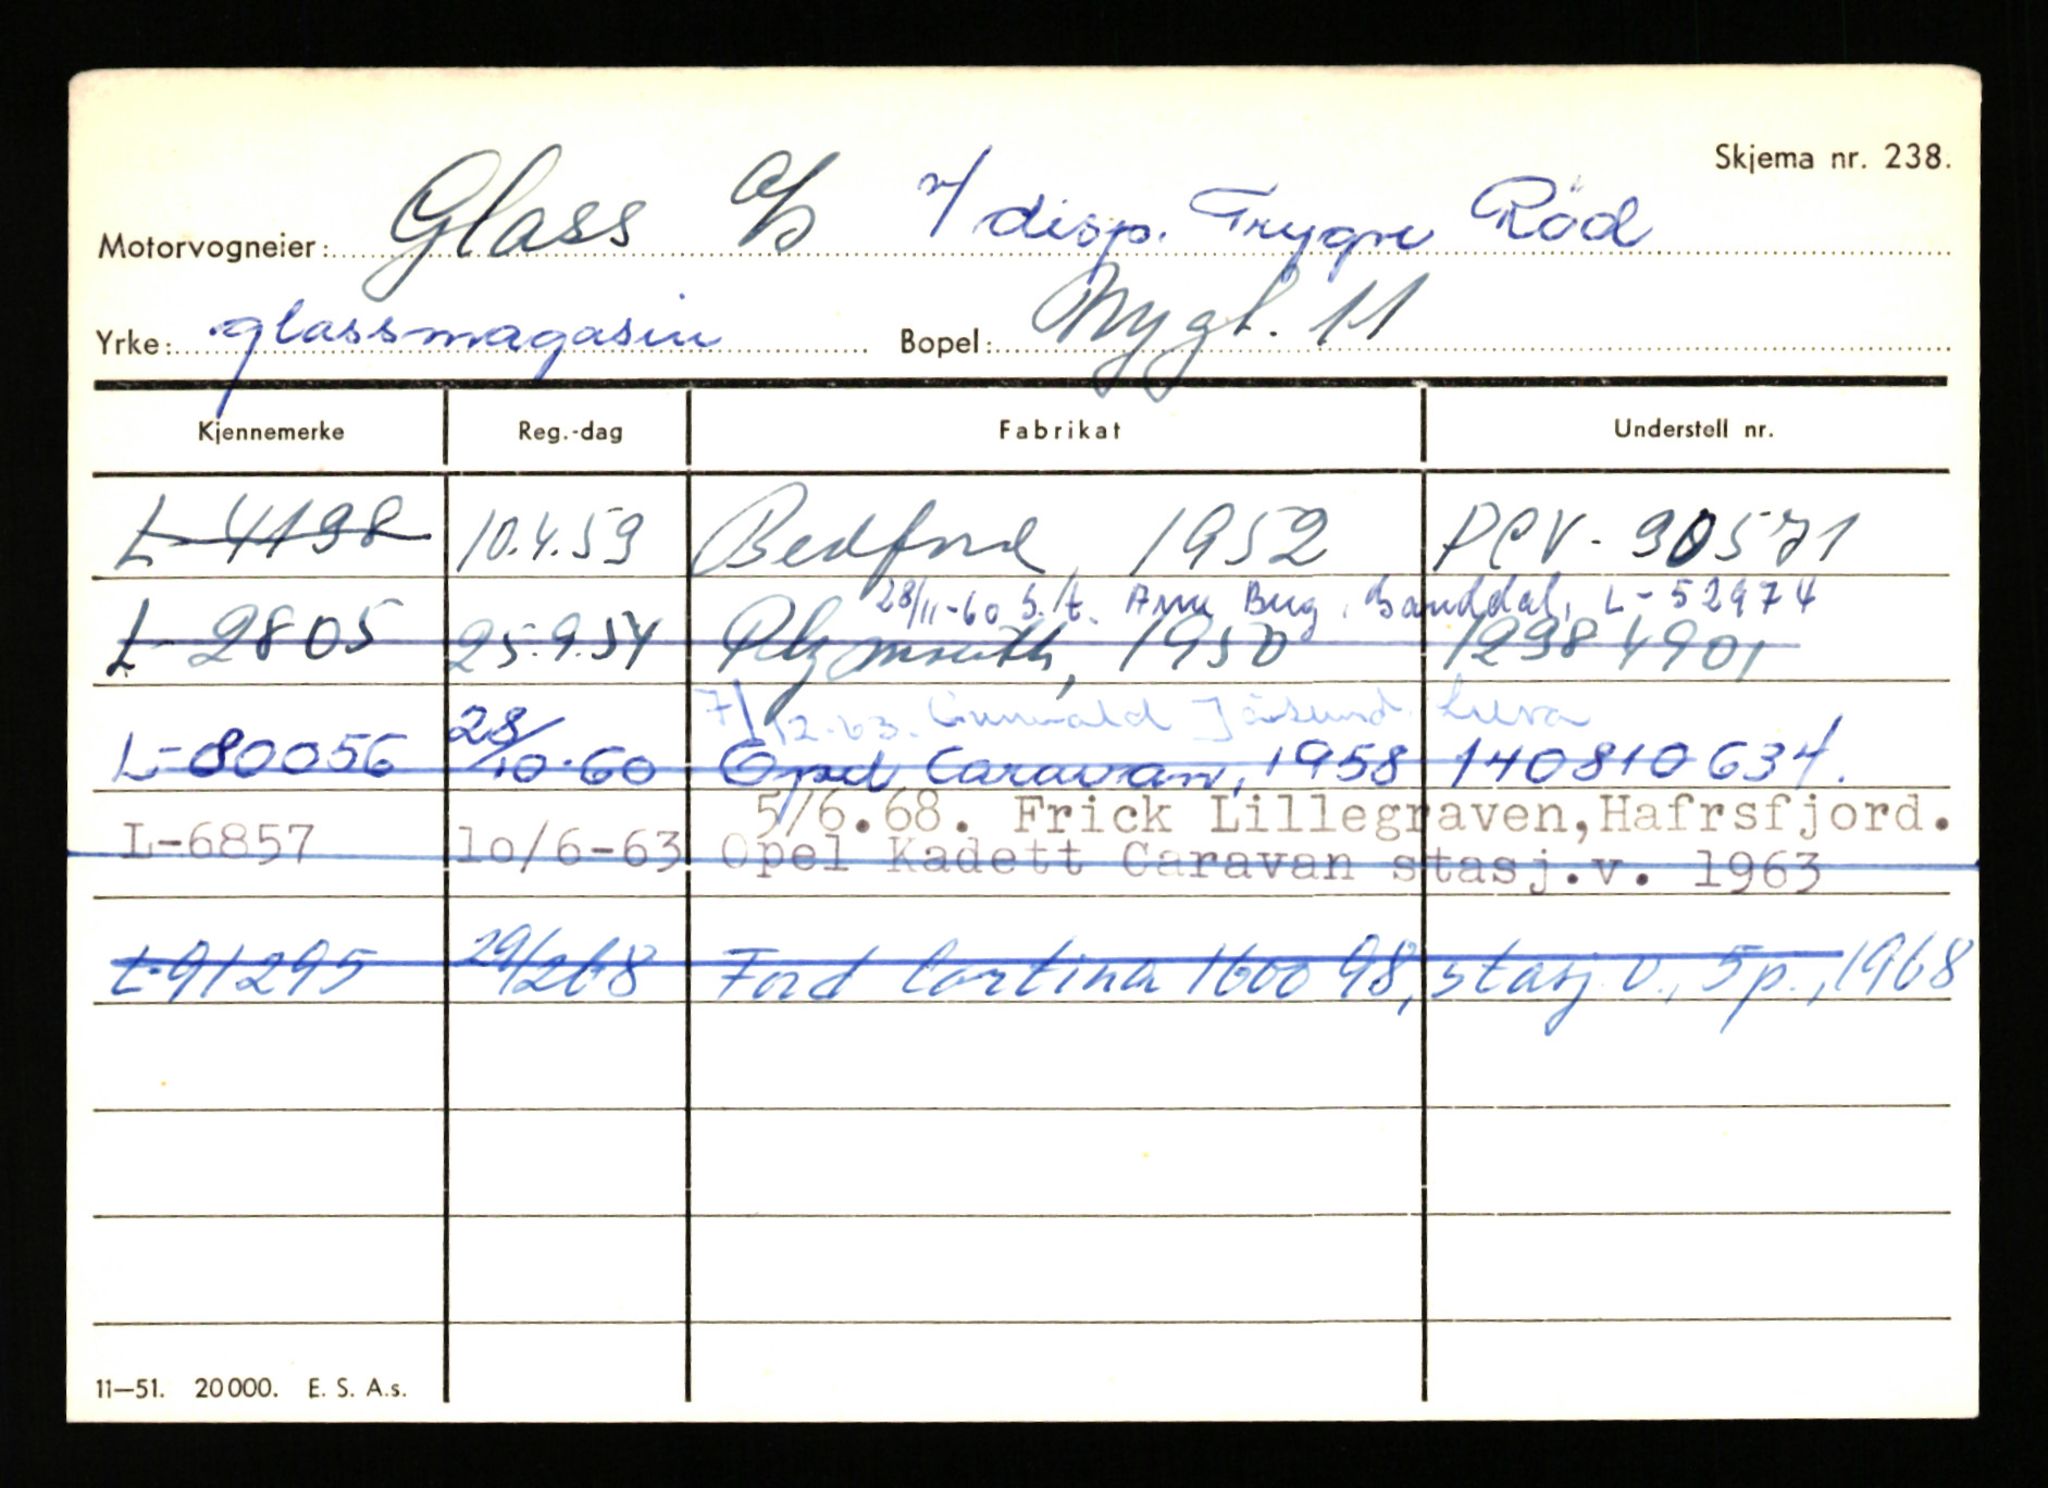 Skjema nr. 238.
Motorvogneier: Glass a/s v/ disp. Trygve Röd
Yrke: glassmagasin Bopel: Nygt. 11
Kjennemerke Reg.-dag Fabrikat Understell nr.
L-4198 10.4.59 Bedford 1952 PCV-90571
28/11-60 s./t. Arne Berg, Ganddal, L-52974
L-2805 25.9.54 Plymouth, 1950 12984901
7/12.63. Gunvald Jåsund
L-80056 28/10.60 Opel Caravan, 1958 140810634.
5/6.68. Frick Lillegraven, Hafrsfjord.
L-6857 10/6-63 Opel Kadett Caravan stasj.v. 1963
L-91295 29/268 Ford Cortina 1600 98, stasj.v., 5p., 1968
11—51. 20000. E. S. A.s.